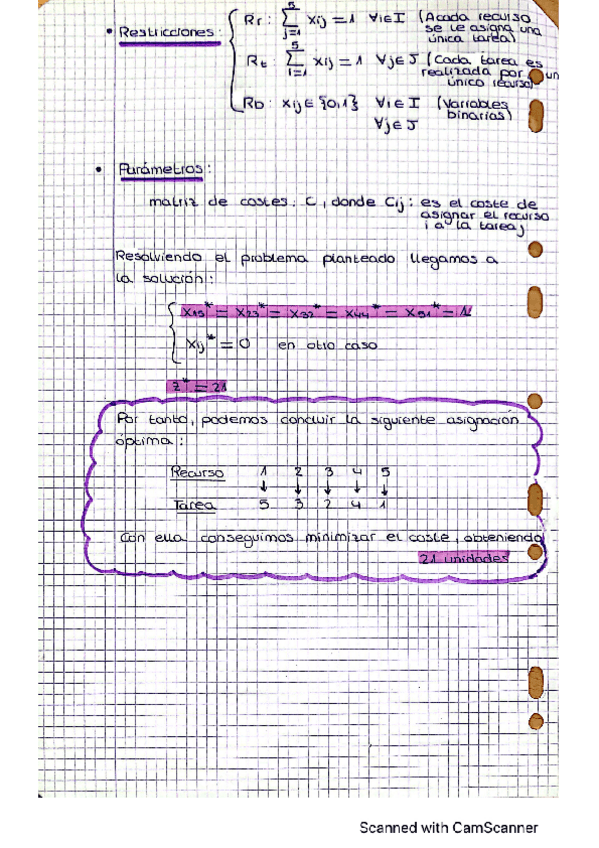 • Restricciones: Rr: 5∑j=1 xij = 1 ∀i∈I (A cada recurso
se le asigna una
única tarea)
Rt: 5∑i=1 xij = 1 ∀j∈J (Cada tarea es
realizada por un
único recurso)
Rb: xij∈{0,1} ∀i∈I (Variables
∀j∈J binarias)
• Parámetros:
matriz de costes, C, donde Cij: es el coste de
asignar el recurso
i a la tarea j
Resolviendo el problema planteado llegamos a
la solución:
x15* = x23* = x32* = x44* = x51* = 1
xij* = 0 en otro caso
z* = 21
Por tanto, podemos concluir la siguiente asignación
óptima:
Recurso 1 2 3 4 5
↓ ↓ ↓ ↓ ↓
Tarea 5 3 2 4 1
Con ella conseguimos minimizar el coste, obteniendo
21 unidades
Scanned with CamScanner